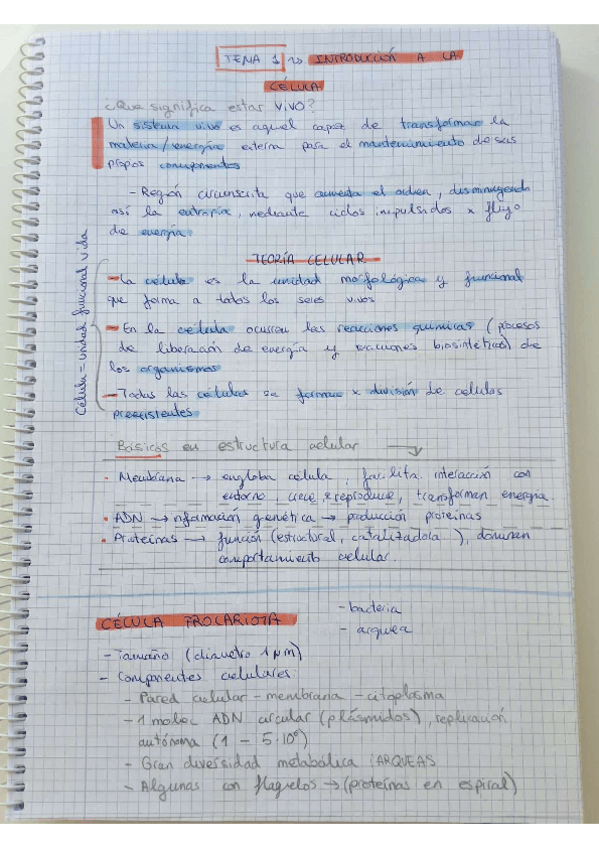 TEMA 1 ~> INTRODUCCIÓN A LA
CÉLULA
¿Que significa estar VIVO?
Un sistema vivo es aquel capaz de transformar la
materia/energía externa para el mantenimiento de sus
propios componentes
- Región circunscrita que aumenta el orden, disminuyendo
así la entropía, mediante ciclos impulsados x flujo
de energía
TEORÍA CELULAR
- La célula es la unidad morfológica y funcional
que forma a todos los seres vivos
- En la célula ocurren las reacciones químicas (procesos
de liberación de energía y reacciones biosintéticas) de
los organismos
- Todas las células se forman x división de células
preexistentes
Célula = unidad funcional vida
Básicos en estructura celular
· Membrana → engloba célula, facilita interacción con
entorno, crece, reproduce, transforman energía
· ADN → información genética → producción proteínas
· Proteínas → función (estructural, catalizadora), dominan
comportamiento celular.
CÉLULA PROCARIOTA
- bacteria
- arquea
- Tamaño (diámetro 1 µm)
- Componentes celulares:
- Pared celular - membrana - citoplasma
- 1 moléc ADN circular (plásmidos), replicación
autónoma (1 - 5·10⁶)
- Gran diversidad metabólica (ARQUEAS
- Algunas con flagelos → (proteínas en espiral)